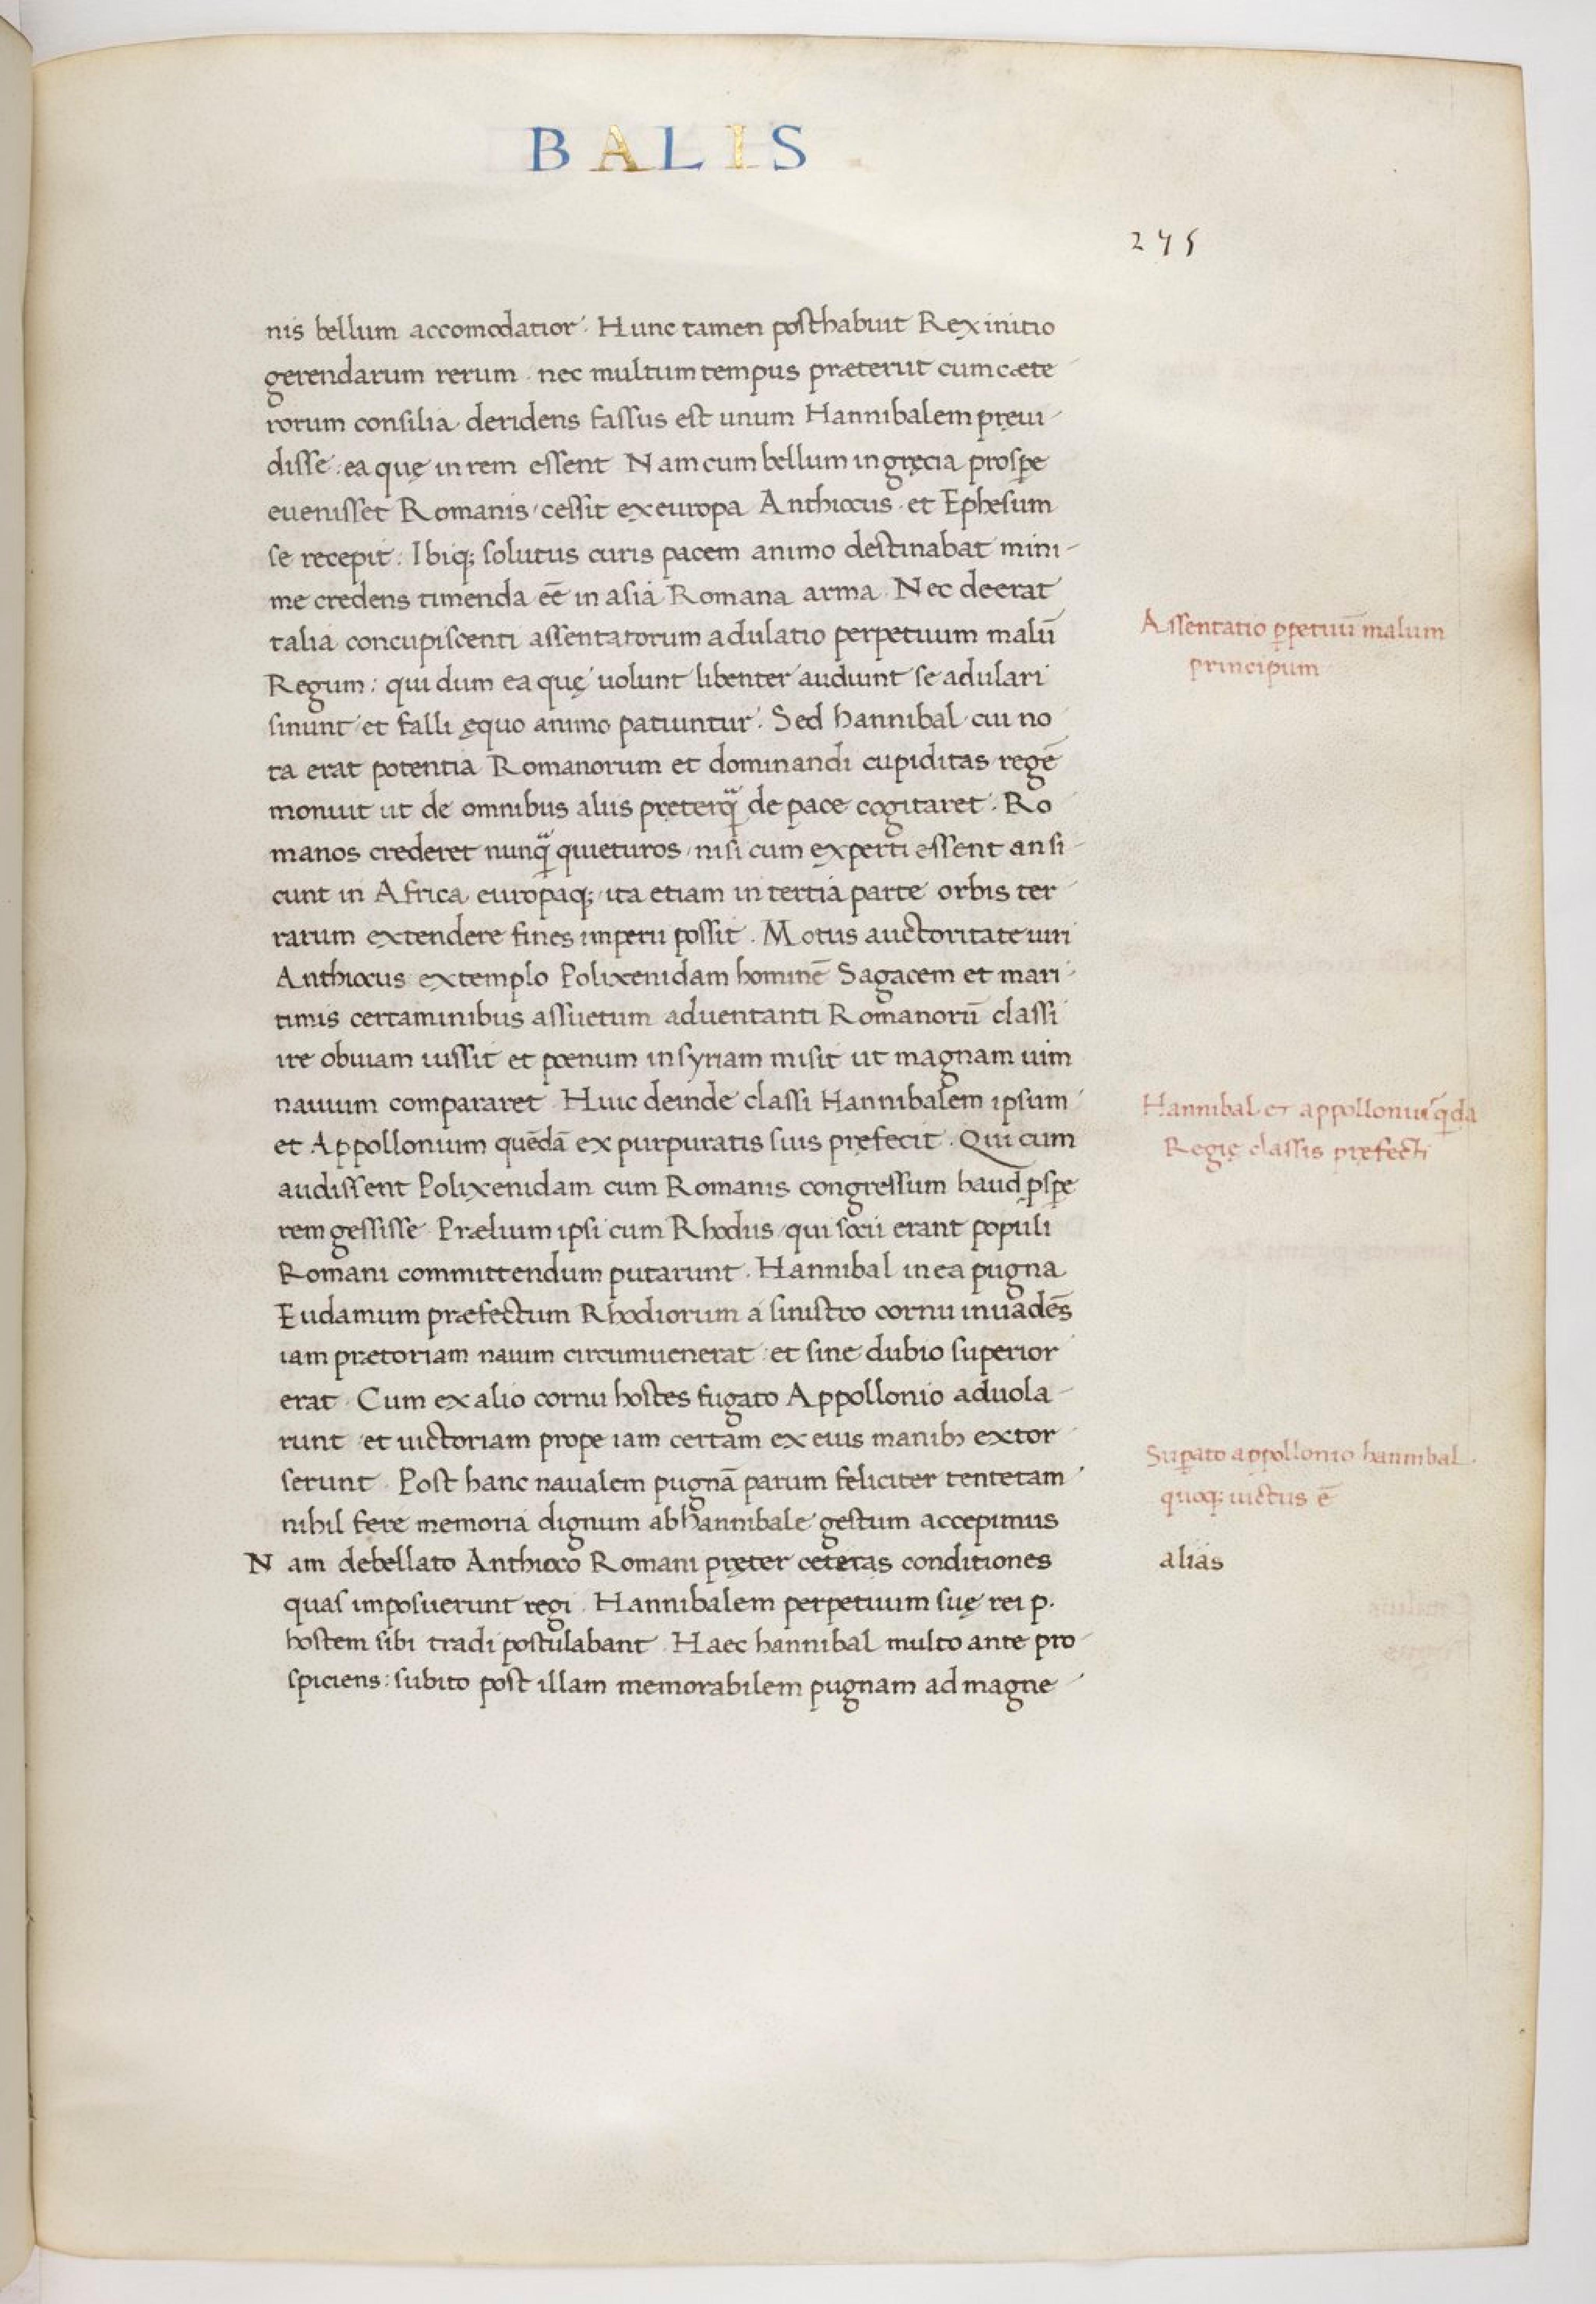 BALIS
245
nis bellum accomodatior. Hunc tamen posthabuit Rex initio
gerendarum rerum. nec multum tempus præteriit cum cæte-
rorum consilia deridens fassus est unum Hannibalem pręui-
disse: ea quę in rem essent Nam cum bellum in gręcia prosꝑe
euenisset Romanis, cessit ex europa Anthiocus. et Ephesum
se recepit. Ibiq; solutus curis pacem animo destinabat mini-
me credens timenda eē in asia Romana arma. Nec deerat
talia concupiscenti assentatorum adulatio perpetuum malū
Regum: qui dum ea quę uolunt libenter audiunt se adulari
sinunt et falli ęquo animo patiuntur. Sed hannibal cui no
ta erat potentia Romanorum et dominandi cupiditas regē
monuit ut de omnibus aliis pręterq̃ de pace cogitaret. Ro
manos crederet nunq̃ quieturos, nisi cum experti essent an si-
cunt in Africa europaq; ita etiam in tertia parte orbis ter
rarum extendere fines imperii possit. Motus auctoritate uiri
Anthiocus extemplo Polixenidam hominē Sagacem et mari-
timis certaminibus assuetum aduentanti Romanorū classi
ire obuiam iussit et pœnum in syriam misit ut magnam uim
nauium compararet. Huic deinde classi Hannibalem ipsum
et Appollonium quēdā ex purpuratis suis pręfecit. Qui cum
audissent Polixenidam cum Romanis congressum haud ꝓsꝑe
rem gessisse. Prælium ipsi cum Rhodiis, qui socii erant populi
Romani committendum putarunt. Hannibal in ea pugna
Eudamum præfectum Rhodiorum a sinistro cornu inuadēs
iam prætoriam nauim circumuenerat: et sine dubio superior
erat. Cum ex alio cornu hostes fugato Appollonio aduola-
runt et uictoriam prope iam certam ex eius manibꝫ extor
serunt. Post hanc naualem pugnā parum feliciter tentetam
nihil fere memoria dignum ab hannibale gestum accepimus
Nam debellato Anthioco Romani pręter ceteras conditiones
quas imposuerunt regi. Hannibalem perpetuum suę rei p.
hostem sibi tradi postulabant. Haec hannibal multo ante pro
spiciens: subito post illam memorabilem pugnam ad magne-
Assentatio ꝑpetuū malum
principum
Hannibal et appolloniuſ q̃da
Regię classis pręfecti
Suꝑato appollonio hannibal.
quoq; uictus ē
alias